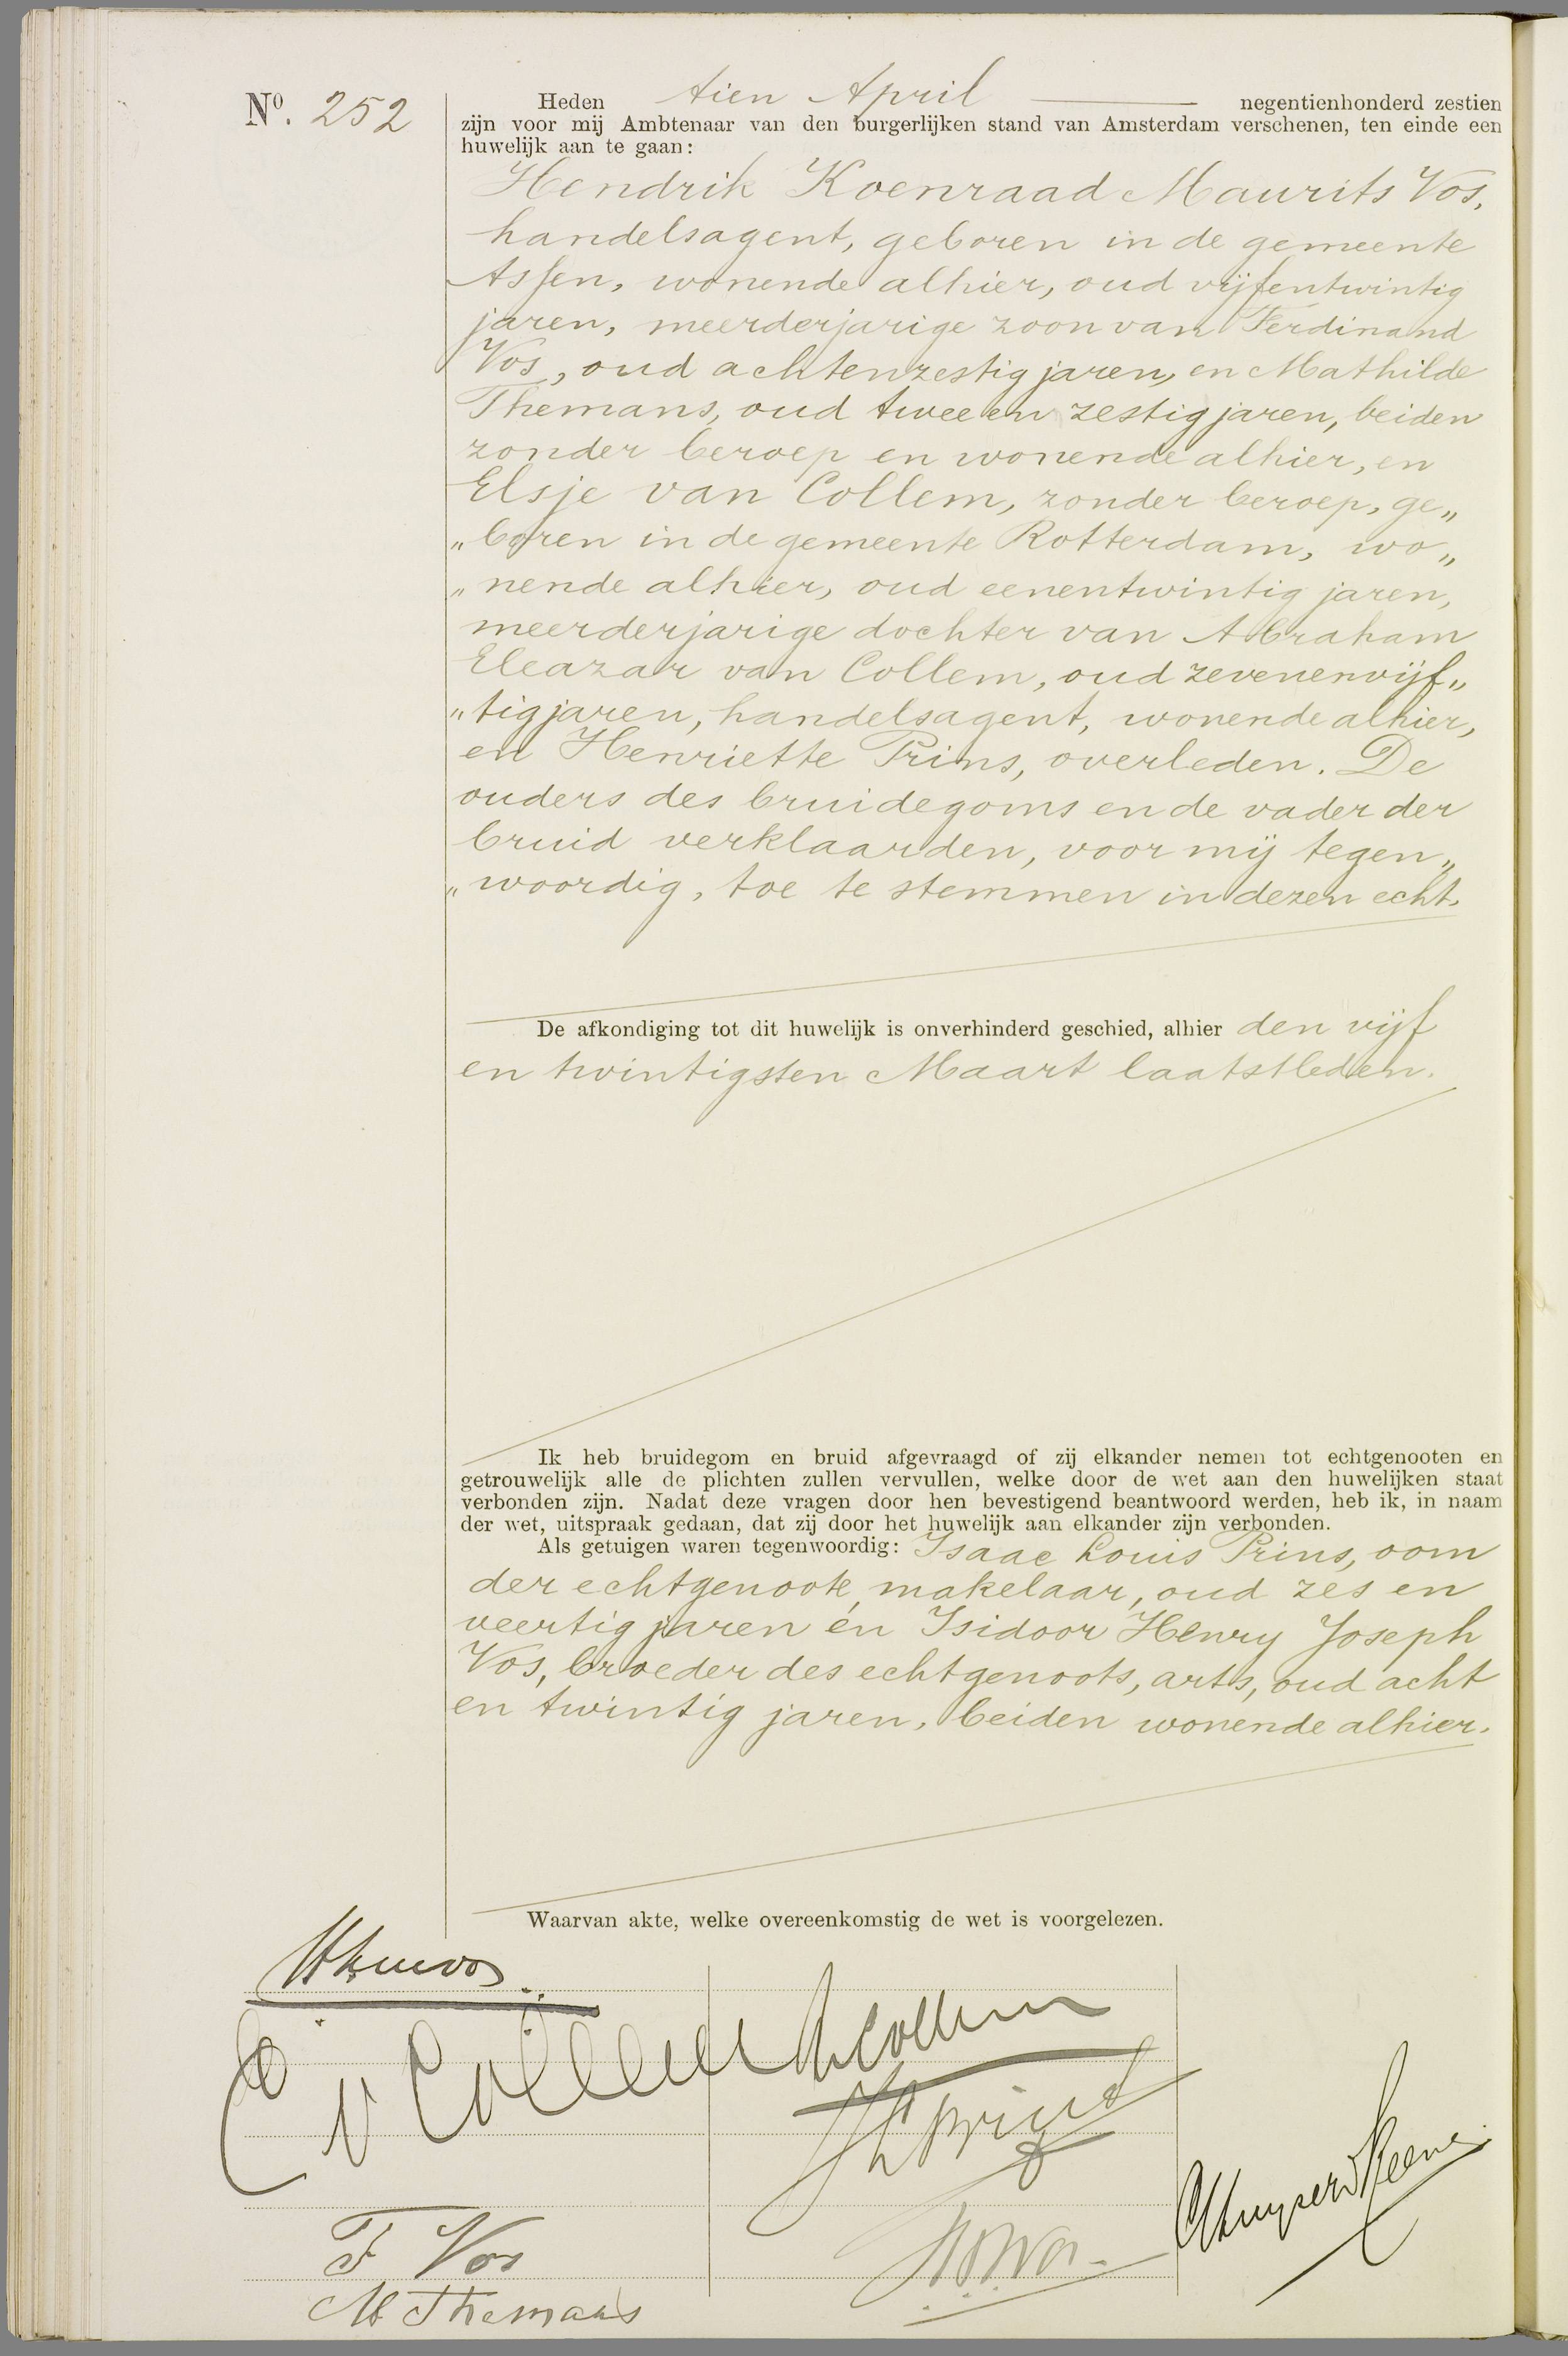 No. 252
Heden tien April negentienhonderd zestien
zijn voor mij Ambtenaar van den burgerlijken stand van Amsterdam verschenen, ten einde een
huwelijk aan te gaan:
Hendrik Koenraad Maurits Vos,
handelsagent, geboren in de gemeente
Assen, wonende alhier, oud vijfentwintig
jaren, meerderjarige zoon van Ferdinand
Vos, oud achtenzestig jaren, en Mathilde
Themans, oud twee en zestig jaren, beiden
zonder beroep en wonende alhier, en
Elsje van Collem, zonder beroep, ge„
„boren in de gemeente Rotterdam, wo„
„nende alhier, oud eenentwintig jaren,
meerderjarige dochter van Abraham
Eleazar van Collem, oud zevenenvijf„
„tig jaren, handelsagent, wonende alhier,
en Henriette Prins, overleden. De
ouders des bruidegoms en de vader der
bruid verklaarden, voor mij tegen„
„woordig, toe te stemmen in dezen echt.
De afkondiging tot dit huwelijk is onverhinderd geschied, alhier den vijf
en twintigsten Maart laatstleden.
Ik heb bruidegom en bruid afgevraagd of zij elkander nemen tot echtgenooten en
getrouwelijk alle de plichten zullen vervullen, welke door de wet aan den huwelijken staat
verbonden zijn. Nadat deze vragen door hen bevestigend beantwoord werden, heb ik, in naam
der wet, uitspraak gedaan, dat zij door het huwelijk aan elkander zijn verbonden.
Als getuigen waren tegenwoordig: Isaac Louis Prins, oom
der echtgenoote, makelaar, oud zes en
veertig jaren en Isidoor Henry Joseph
Vos, broeder des echtgenoots, arts, oud acht
en twintig jaren, beiden wonende alhier.
Waarvan akte, welke overeenkomstig de wet is voorgelezen.
E v Collem
F Vos
M Themans